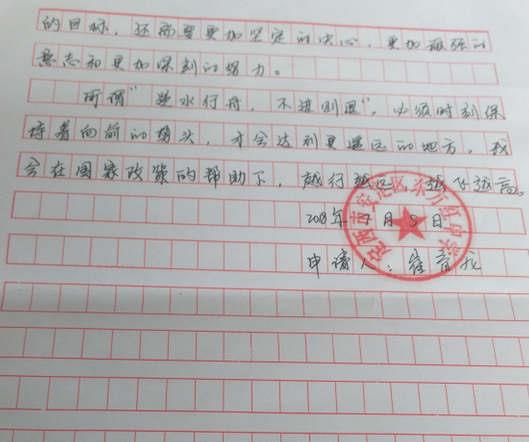 的目标，还需要更加坚定的决心，更加顽强的
意志和更加深刻的努力。
所谓“逆水行舟，不进则退”，必须时刻保
持着向前的势头，才会达到更遥远的地方，我
会在国家政策的帮助下，越行越远，越飞越高。
2018年 7月 5日
申请人：崔
定西市安定区东方红中学